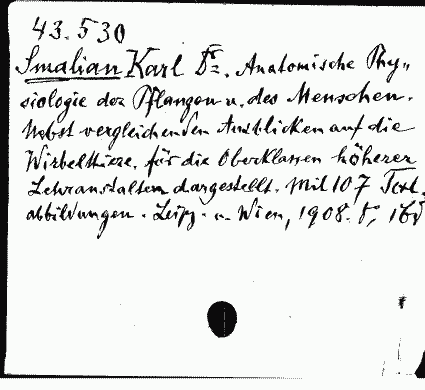 43.530
Smalian Karl Dr. Anatomische Phy„
siologie der Pflanzen u. des Menschen.
Nebst vergleichenden Ausblicken auf die
Wirbeltiere, für die Oberklassen höherer
Lehranstalten dargestellt. Mit 107 Text„
abbildungen. Leipz. u. Wien, 1908. 8°,